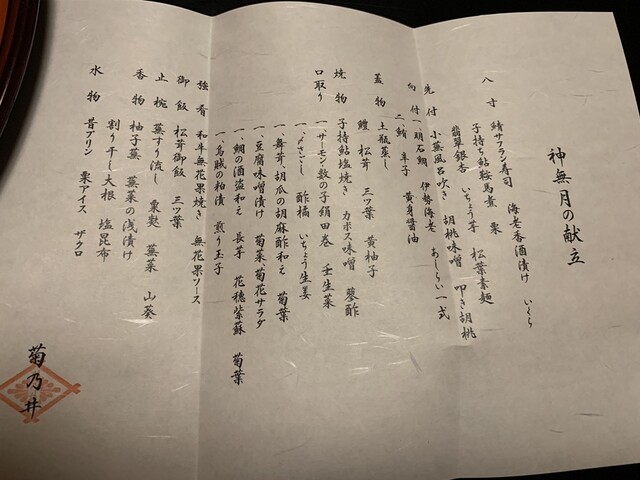 神無月の献立
八寸 鯖サフラン寿司 海老香酒漬け いくら
子持ち鮎鞍馬煮 栗
翡翠銀杏 いちょう芋 松葉素麺
先付 小蕪風呂吹き 胡桃味噌 叩き胡桃
向付 一、明石鯛 伊勢海老 あしらい一式
二、鮪 辛子 黄身醤油
蓋物 土瓶蒸し
鱧 松茸 三ツ葉 黄柚子
焼物 子持鮎塩焼き カボス味噌 蓼酢
口取り 一、サーモン数の子絹田巻 壬生菜
一、〆さごし 酢橘 いちょう生姜
一、舞茸、胡瓜の胡麻酢和え 菊葉
一、豆腐味噌漬け 菊菜菊花サラダ
一、鯛の酒盗和え 長芋 花穂紫蘇 菊葉
一、烏賊の粕漬 煎り玉子
強肴 和牛無花果焼き 無花果ソース
御飯 松茸御飯 三ツ葉
止椀 蕪すり流し 粟麩 蕪菜 山葵
香物 柚子蕪 蕪菜の浅漬け
割り干し大根 塩昆布
水物 昔プリン 栗アイス ザクロ
菊乃井